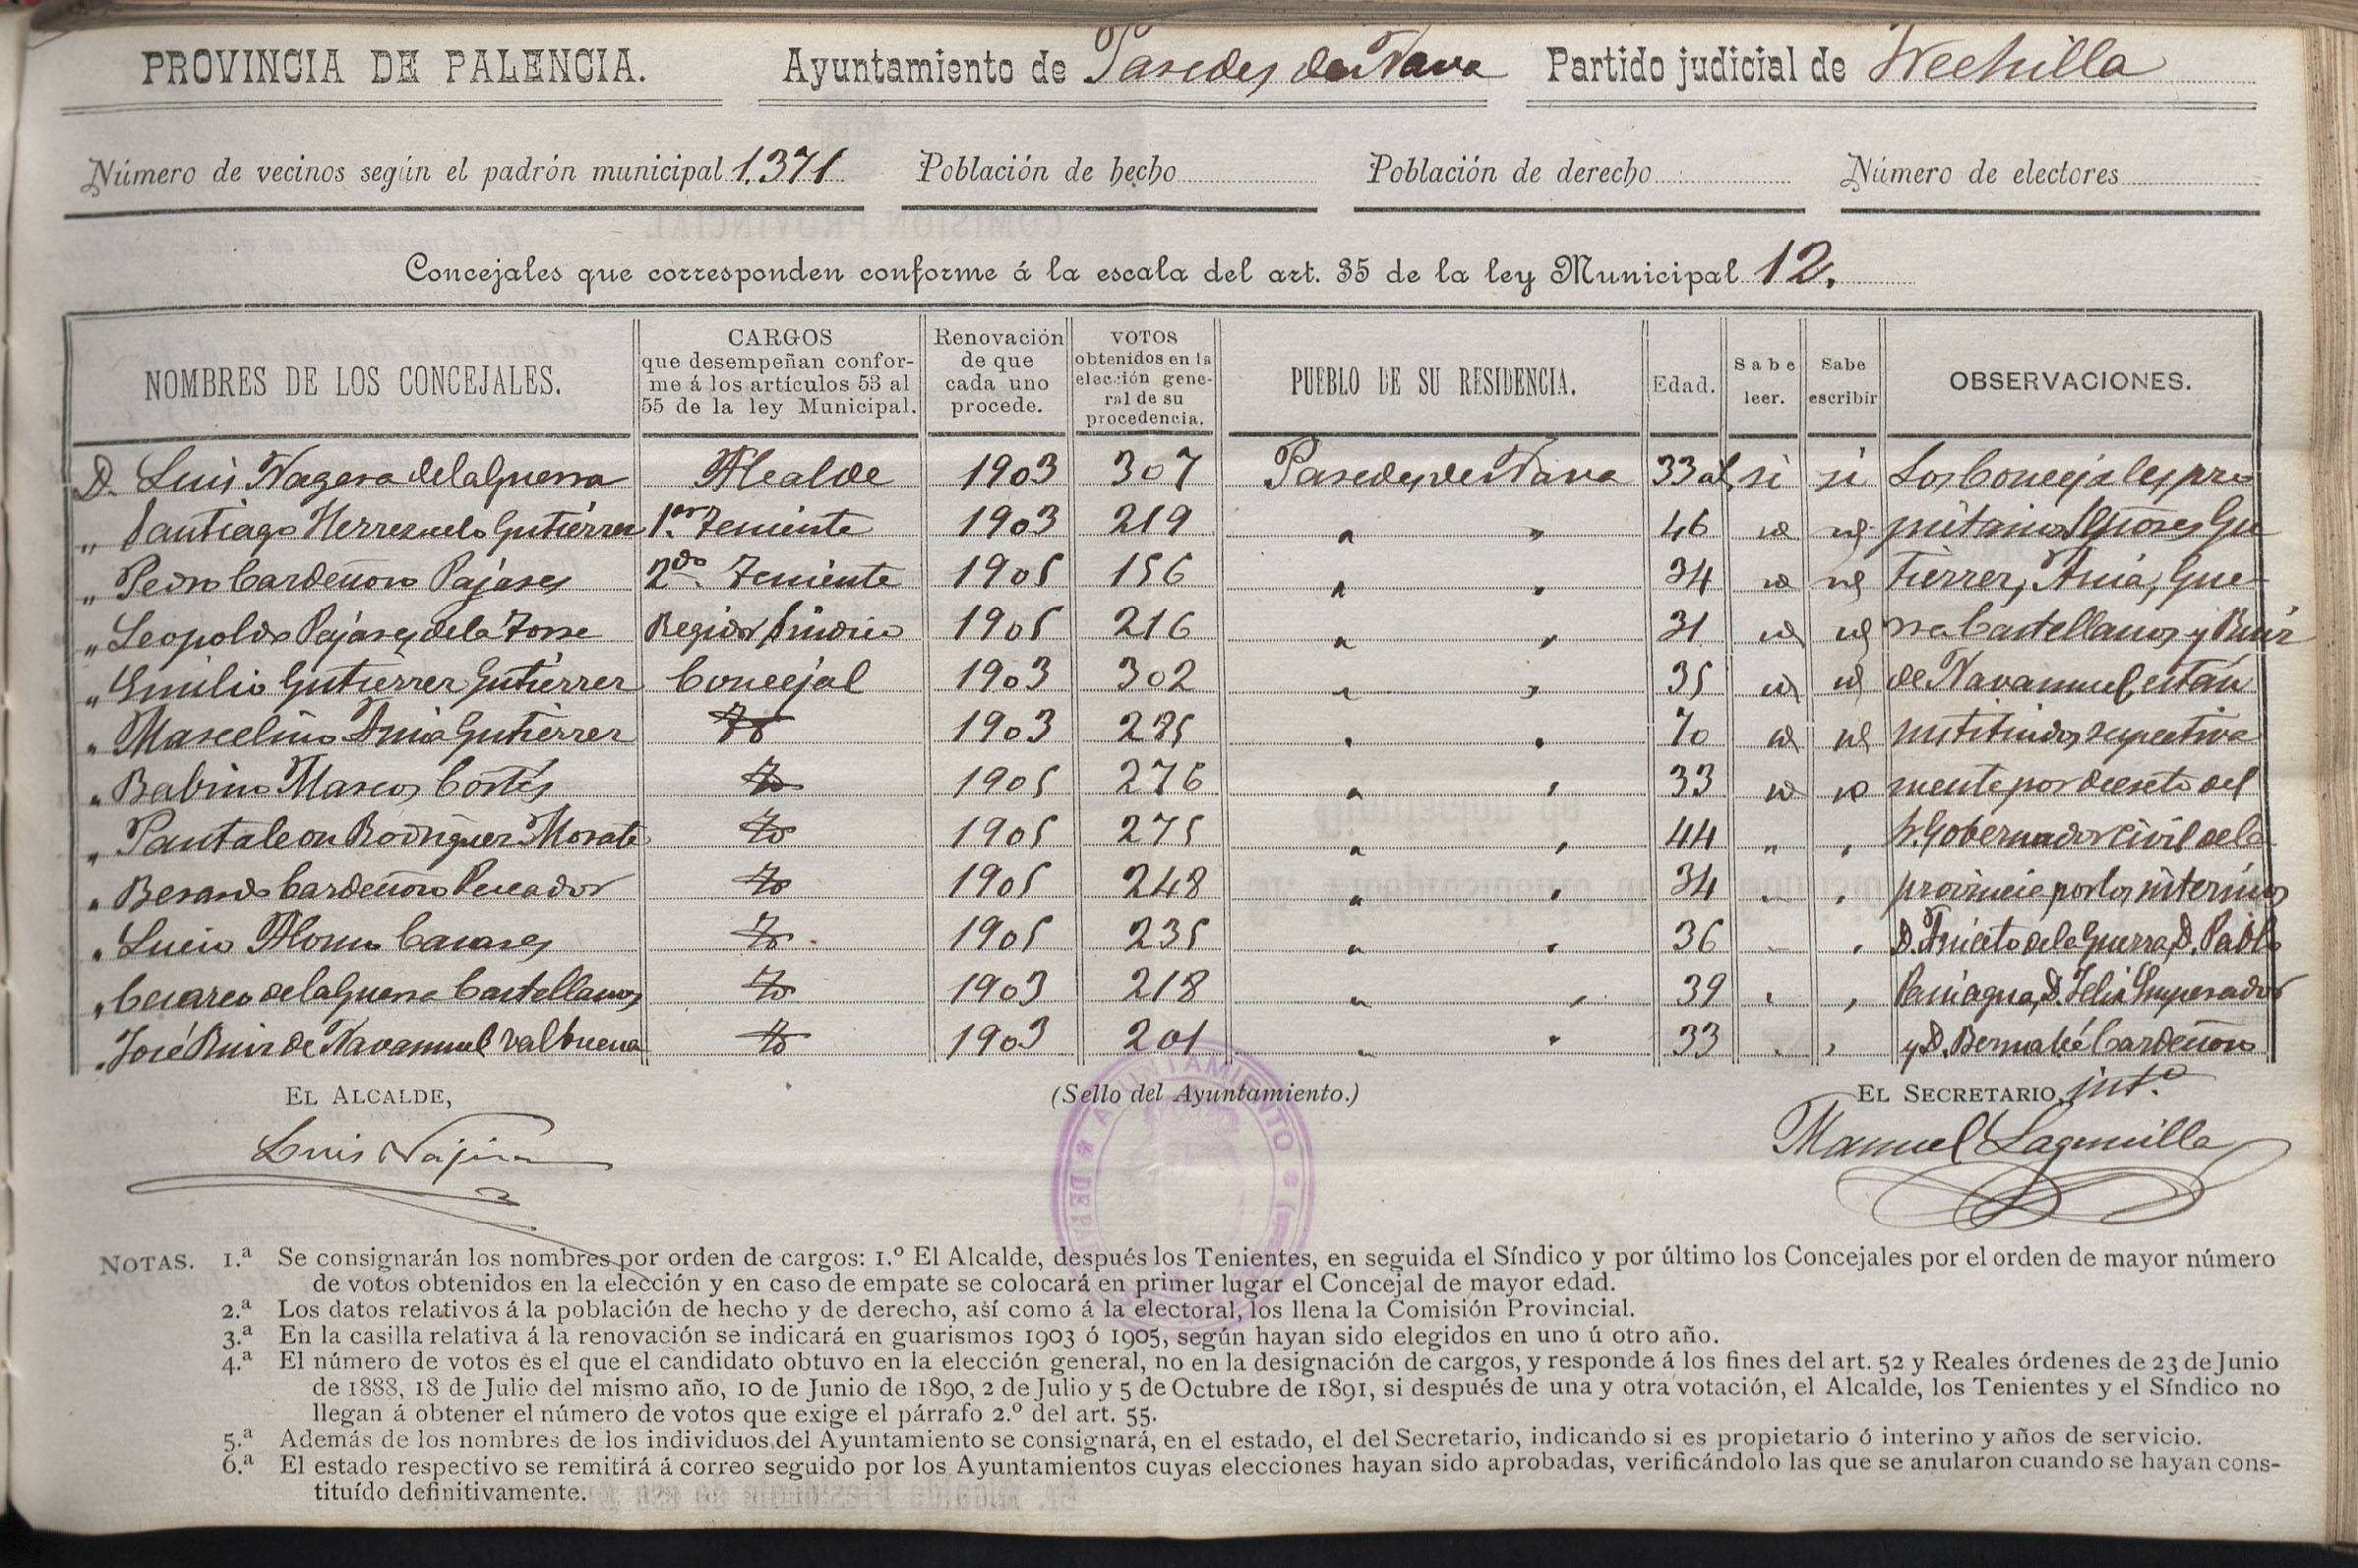 PROVINCIA DE PALENCIA. Ayuntamiento de Paredes de Nava Partido judicial de Frechilla
Número de vecinos según el padrón municipal 1.371 Población de hecho Población de derecho Número de electores
Concejales que corresponden conforme á la escala del art. 35 de la ley Municipal 12.
NOMBRES DE LOS CONCEJALES. CARGOS que desempeñan conforme á los artículos 53 al 55 de la ley Municipal. Renovación de que cada uno procede. VOTOS obtenidos en la elección general de su procedencia. PUEBLO DE SU RESIDENCIA. Edad. Sabe leer. Sabe escribir OBSERVACIONES.
D. Luis Nagera de la Guerra Alcalde 1903 307 Paredes de Nava 33 si si Los Concejales pro
" Santiago Herrezuelo Gutiérrez 1.er Teniente 1903 219 " " 46 id id pietarios Señores Gu
" Pedro Cardeñoso Pajares 2do. Teniente 1905 156 " " 34 id id tierrez, Ania, Gue
" Leopoldo Pajares de la Torre Regidor Síndico 1905 216 " " 31 id id rra Castellanos y Ruiz
" Emilio Gutierrez Gutierrez Concejal 1903 302 " " 35 id id de Navamuel, están
" Marcelino Ania Gutierrez Id 1903 285 " " 70 id id sustituidos respectiva
" Balbino Marcos Cortés Id 1905 276 " " 33 id id mente por decreto del
" Pantaleon Rodriguez Morate Id 1905 275 " " 44 " " Sr. Gobernador Civil de la
" Berardo Cardeñoso Pescador Id 1905 248 " " 34 " " provincia por los interinos
" Lucio Alonso Casares Id 1905 235 " " 36 " " D. Aniceto de la Guerra, D. Pablo
" Cesareo de la Guerra Castellanos Id 1903 218 " " 39 " " Paniagua, D. Felix Emperador
" José Ruiz de Navamuel Valbuena Id 1903 201 " " 33 " " y D. Bernabé Cardeñoso
EL ALCALDE, (Sello del Ayuntamiento.) EL SECRETARIO, int.º
Luis Nájera Manuel Lagunilla
AYUNTAMIENTO
NOTAS. 1.ª Se consignarán los nombres por orden de cargos: 1.º El Alcalde, después los Tenientes, en seguida el Síndico y por último los Concejales por el orden de mayor número
de votos obtenidos en la elección y en caso de empate se colocará en primer lugar el Concejal de mayor edad.
2.ª Los datos relativos á la población de hecho y de derecho, así como á la electoral, los llena la Comisión Provincial.
3.ª En la casilla relativa á la renovación se indicará en guarismos 1903 ó 1905, según hayan sido elegidos en uno ú otro año.
4.ª El número de votos es el que el candidato obtuvo en la elección general, no en la designación de cargos, y responde á los fines del art. 52 y Reales órdenes de 23 de Junio
de 1888, 18 de Julio del mismo año, 10 de Junio de 1890, 2 de Julio y 5 de Octubre de 1891, si después de una y otra votación, el Alcalde, los Tenientes y el Síndico no
llegan á obtener el número de votos que exige el párrafo 2.º del art. 55.
5.ª Además de los nombres de los individuos del Ayuntamiento se consignará, en el estado, el del Secretario, indicando si es propietario ó interino y años de servicio.
6.ª El estado respectivo se remitirá á correo seguido por los Ayuntamientos cuyas elecciones hayan sido aprobadas, verificándolo las que se anularon cuando se hayan cons-
tituído definitivamente.